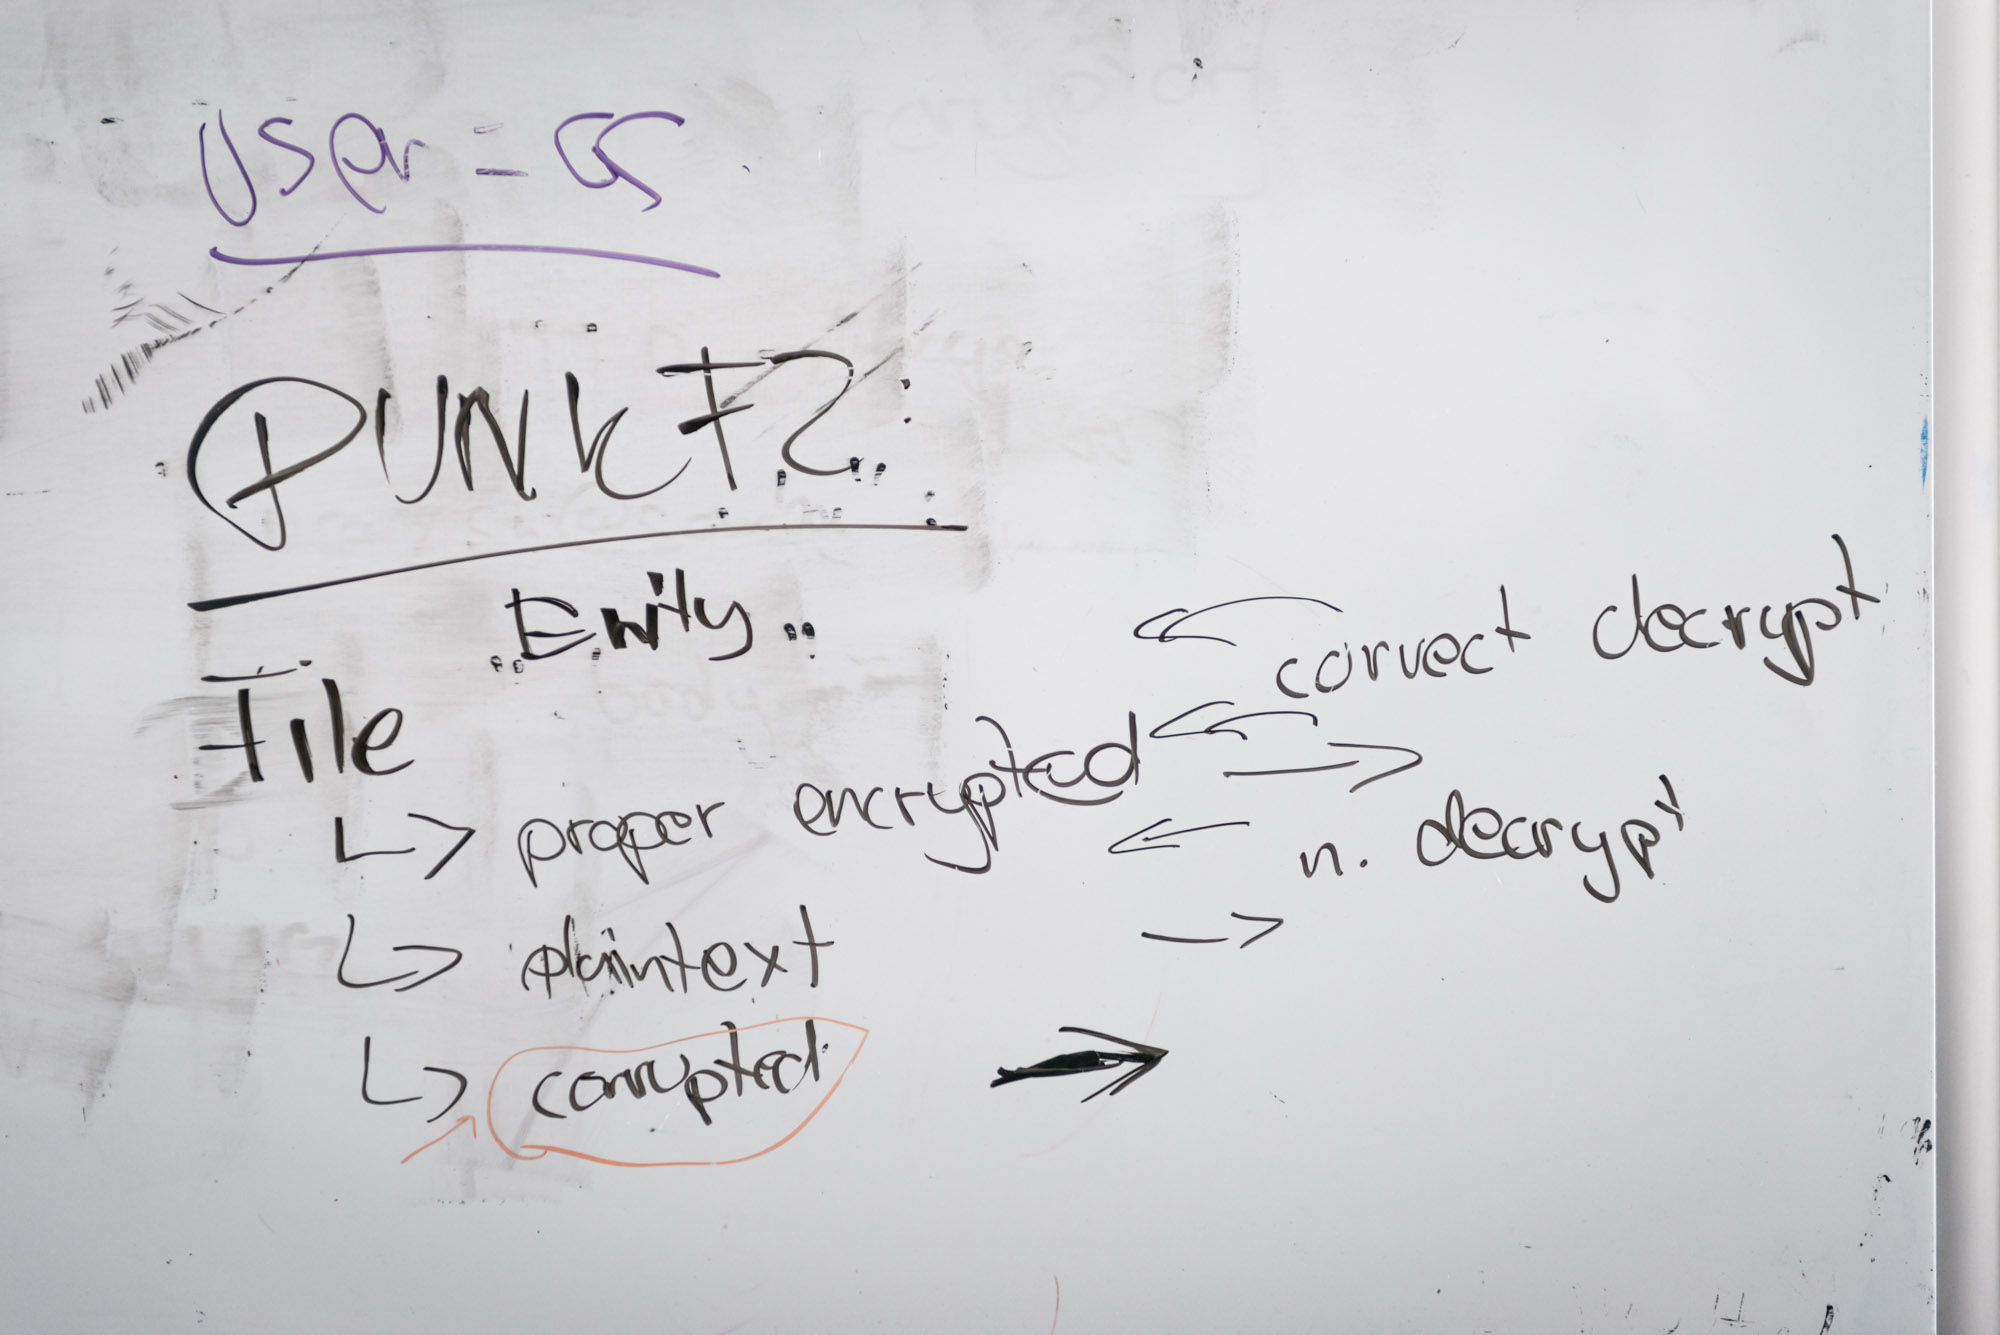 User =
PUNKT2:
Emily
File
correct decrypt
↳ proper encrypted
n. decrypt
↳ plaintext
↳ corrupted